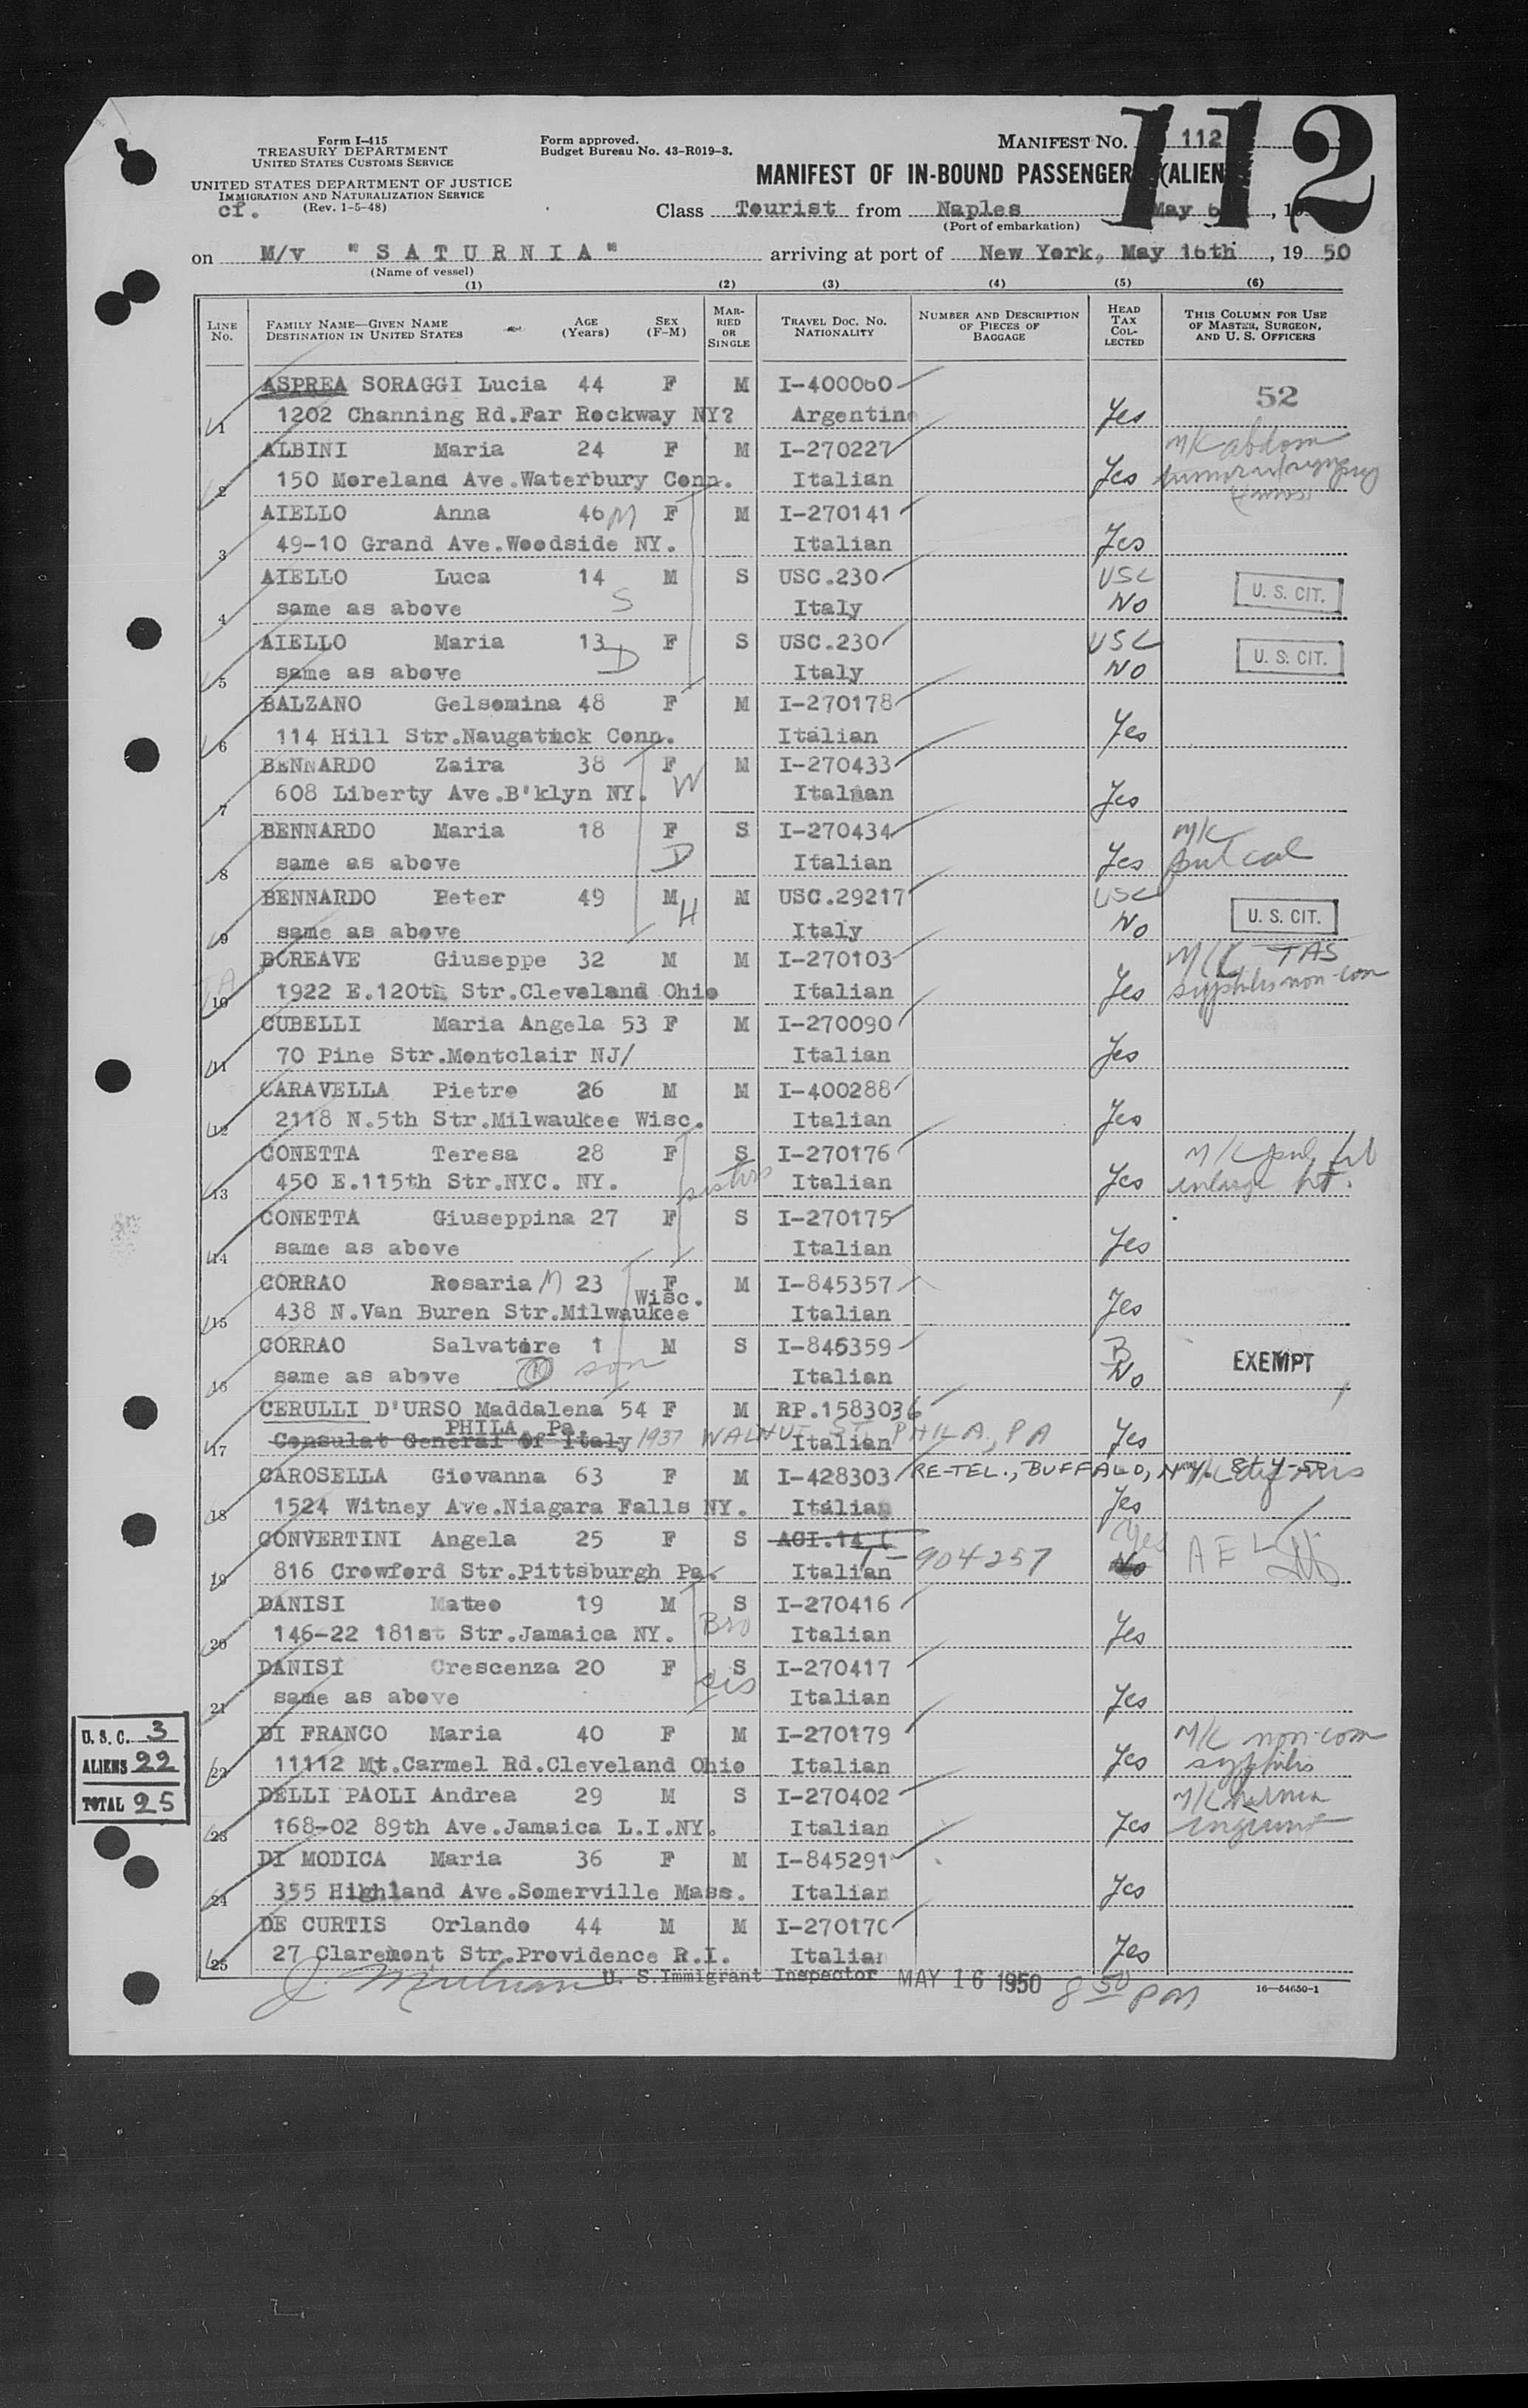 Form I-415
TREASURY DEPARTMENT
UNITED STATES CUSTOMS SERVICE
UNITED STATES DEPARTMENT OF JUSTICE
IMMIGRATION AND NATURALIZATION SERVICE
cf. (Rev. 1-5-48)
Form approved.
Budget Bureau No. 43-R019-3.
MANIFEST NO. 112
112
MANIFEST OF IN-BOUND PASSENGER (ALIEN
Class Tourist from Naples May
(Port of embarkation)
on M/v "SATURNIA" arriving at port of New York, May 16th, 1950
(Name of vessel)
(1) (2) (3) (4) (5) (6)
LINE NO.
FAMILY NAME—GIVEN NAME
DESTINATION IN UNITED STATES
AGE (Years)
SEX (F-M)
MARRIED OR SINGLE
TRAVEL DOC. NO. NATIONALITY
NUMBER AND DESCRIPTION OF PIECES OF BAGGAGE
HEAD TAX COLLECTED
THIS COLUMN FOR USE OF MASTER, SURGEON, AND U. S. OFFICERS
ASPREA SORAGGI Lucia 44 F M I-400060 52
1 1202 Channing Rd.Far Rockway NY? Argentine Yes
ALBINI Maria 24 F M I-270227 M/K abdom
2 150 Moreland Ave.Waterbury Conn. Italian Yes
AIELLO Anna 46 M F M I-270141
3 49-10 Grand Ave.Woodside NY. Italian Yes
AIELLO Luca 14 M S USC.230 USC
4 same as above S Italy No U. S. CIT.
AIELLO Maria 13 F S USC.230 USC
5 same as above D Italy NO U. S. CIT.
BALZANO Gelsomina 48 F M I-270178
6 114 Hill Str.Naugatuck Conn. Italian Yes
BENNARDO Zaira 38 F M I-270433
7 608 Liberty Ave.B'klyn NY. W Italian Yes
BENNARDO Maria 18 F S I-270434 M/K
8 same as above D Italian Yes pul cal
BENNARDO Peter 49 M M USC.29217 USC
9 same as above H Italy No U. S. CIT.
BCREAVE Giuseppe 32 M M I-270103 M/K TAS
10 1922 E.120th Str.Cleveland Ohio Italian Yes syphilis non-com
CUBELLI Maria Angela 53 F M I-270090
11 70 Pine Str.Montclair NJ/ Italian Yes
CARAVELLA Pietro 26 M M I-400288
12 2118 N.5th Str.Milwaukee Wisc. Italian Yes
CONETTA Teresa 28 F S I-270176 M/K pul
13 450 E.115th Str.NYC. NY. sisters Italian Yes enlarge ht.
CONETTA Giuseppina 27 F S I-270175
14 same as above Italian Yes
CORRAO Rosaria M 23 F M I-845357
15 438 N.Van Buren Str.Milwaukee Wisc. Italian Yes
CORRAO Salvatore 1 M S I-845359 B
16 same as above son Italian No EXEMPT
CERULLI D'URSO Maddalena 54 F M RP.1583036
PHILA Pa.
17 Consulat General of Italy 1937 WALNUT ST. PHILA, PA Italian Yes
CAROSELLA Giovanna 63 F M I-428303 RE-TEL., BUFFALO, N.Y.
18 1524 Witney Ave.Niagara Falls NY. Italian Yes
CONVERTINI Angela 25 F S Yes
19 816 Crowford Str.Pittsburgh Pa. Italian I-904257 No
DANISI Matteo 19 M S I-270416
20 146-22 181st Str.Jamaica NY. Bro Italian Yes
DANISI Crescenza 20 F S I-270417
21 same as above sis Italian Yes
DI FRANCO Maria 40 F M I-270179 M/K non-com
22 11112 Mt.Carmel Rd.Cleveland Ohio Italian Yes syphilis
DELLI PAOLI Andrea 29 M S I-270402 M/K hernia
23 168-02 89th Ave.Jamaica L.I.NY. Italian Yes
DI MODICA Maria 36 F M I-845291
24 355 Highland Ave.Somerville Mass. Italian Yes
DE CURTIS Orlando 44 M M I-270170
25 27 Claremont Str.Providence R.I. Italian Yes
U. S. C. 3
ALIENS 22
TOTAL 25
U. S.Immigrant Inspector MAY 16 1950 8 50 PM
16—54650-1